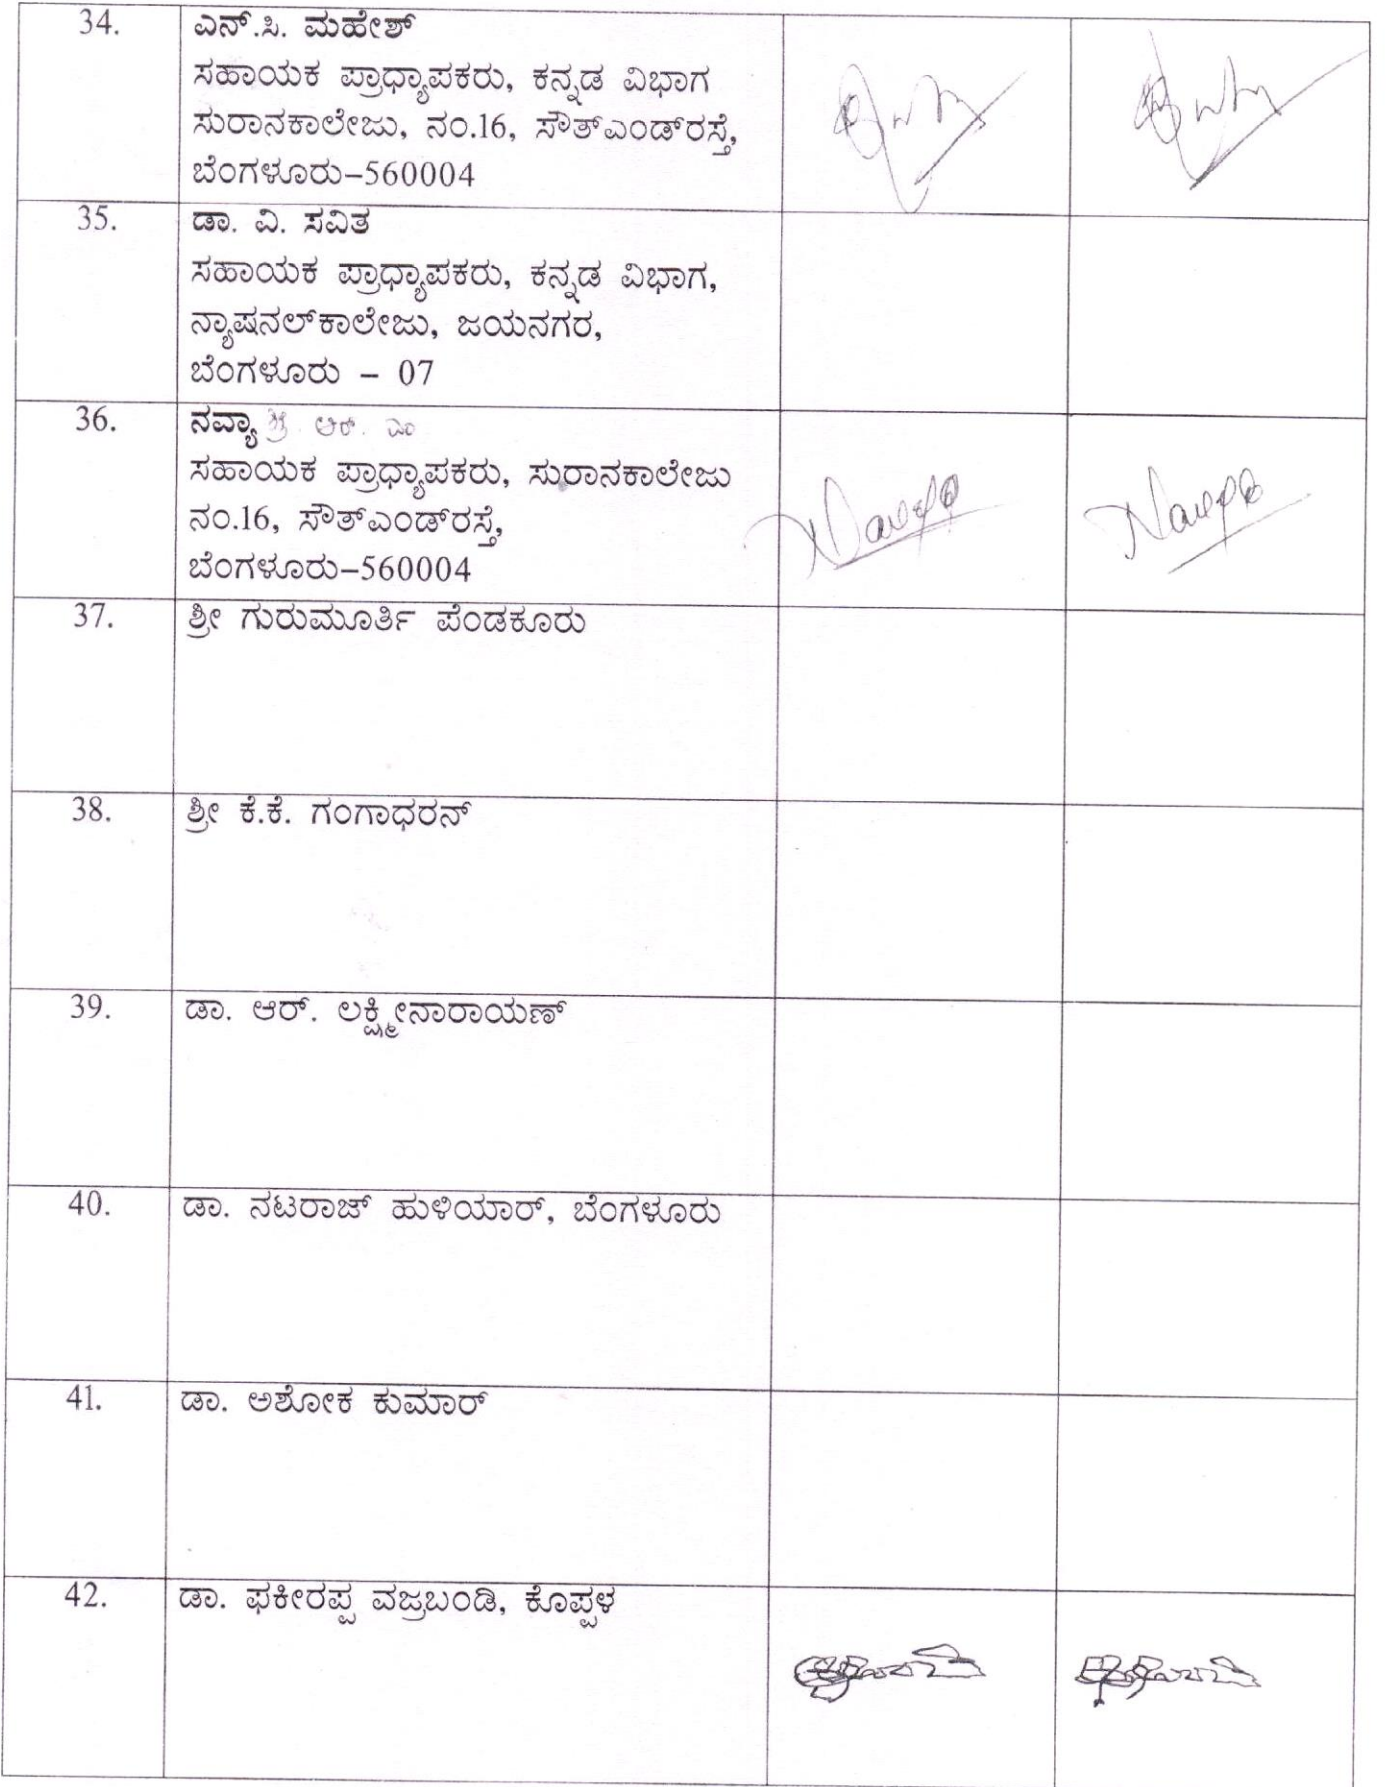 34. ಎನ್.ಸಿ. ಮಹೇಶ್
ಸಹಾಯಕ ಪ್ರಾಧ್ಯಾಪಕರು, ಕನ್ನಡ ವಿಭಾಗ
ಸುರಾನಕಾಲೇಜು, ನಂ.16, ಸೌತ್‌ಎಂಡ್‌ರಸ್ತೆ,
ಬೆಂಗಳೂರು–560004
35. ಡಾ. ವಿ. ಸವಿತ
ಸಹಾಯಕ ಪ್ರಾಧ್ಯಾಪಕರು, ಕನ್ನಡ ವಿಭಾಗ,
ನ್ಯಾಷನಲ್‌ಕಾಲೇಜು, ಜಯನಗರ,
ಬೆಂಗಳೂರು – 07
36. ನವ್ಯಾ ಶ್ರೀ ಆರ್. ಎಂ
ಸಹಾಯಕ ಪ್ರಾಧ್ಯಾಪಕರು, ಸುರಾನಕಾಲೇಜು
ನಂ.16, ಸೌತ್‌ಎಂಡ್‌ರಸ್ತೆ,
ಬೆಂಗಳೂರು–560004
37. ಶ್ರೀ ಗುರುಮೂರ್ತಿ ಪೆಂಡಕೂರು
38. ಶ್ರೀ ಕೆ.ಕೆ. ಗಂಗಾಧರನ್
39. ಡಾ. ಆರ್. ಲಕ್ಷ್ಮೀನಾರಾಯಣ್
40. ಡಾ. ನಟರಾಜ್ ಹುಳಿಯಾರ್, ಬೆಂಗಳೂರು
41. ಡಾ. ಅಶೋಕ ಕುಮಾರ್
42. ಡಾ. ಫಕೀರಪ್ಪ ವಜ್ರಬಂಡಿ, ಕೊಪ್ಪಳ